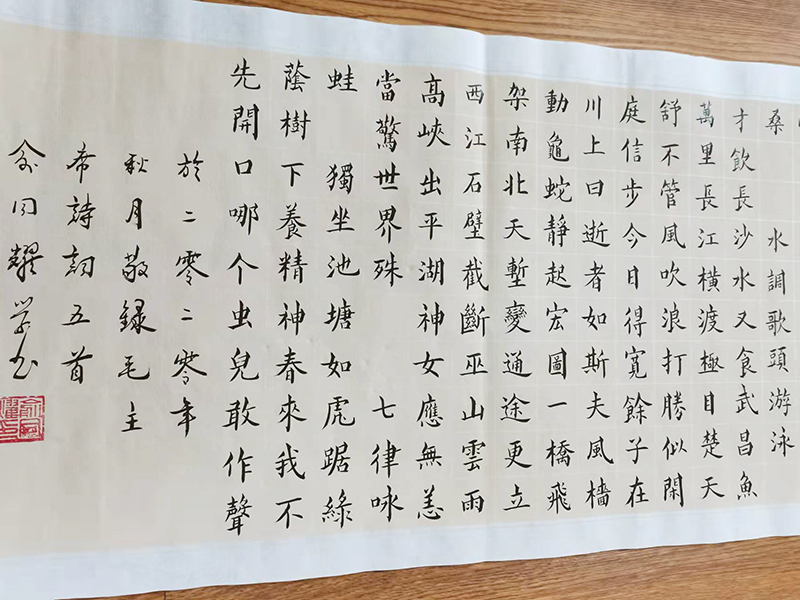 桑 水調歌頭游泳
才飲長沙水又食武昌魚
萬里長江橫渡極目楚天
舒不管風吹浪打勝似閑
庭信步今日得寬餘子在
川上曰逝者如斯夫風檣
動龜蛇靜起宏圖一橋飛
架南北天塹變通途更立
西江石壁截斷巫山雲雨
高峽出平湖神女應無恙
當驚世界殊 七律咏
蛙 獨坐池塘如虎踞綠
蔭樹下養精神春來我不
先開口哪个虫兒敢作聲
於二零二零年
秋月敬録毛主
希詩詞五首
俞同耀学书